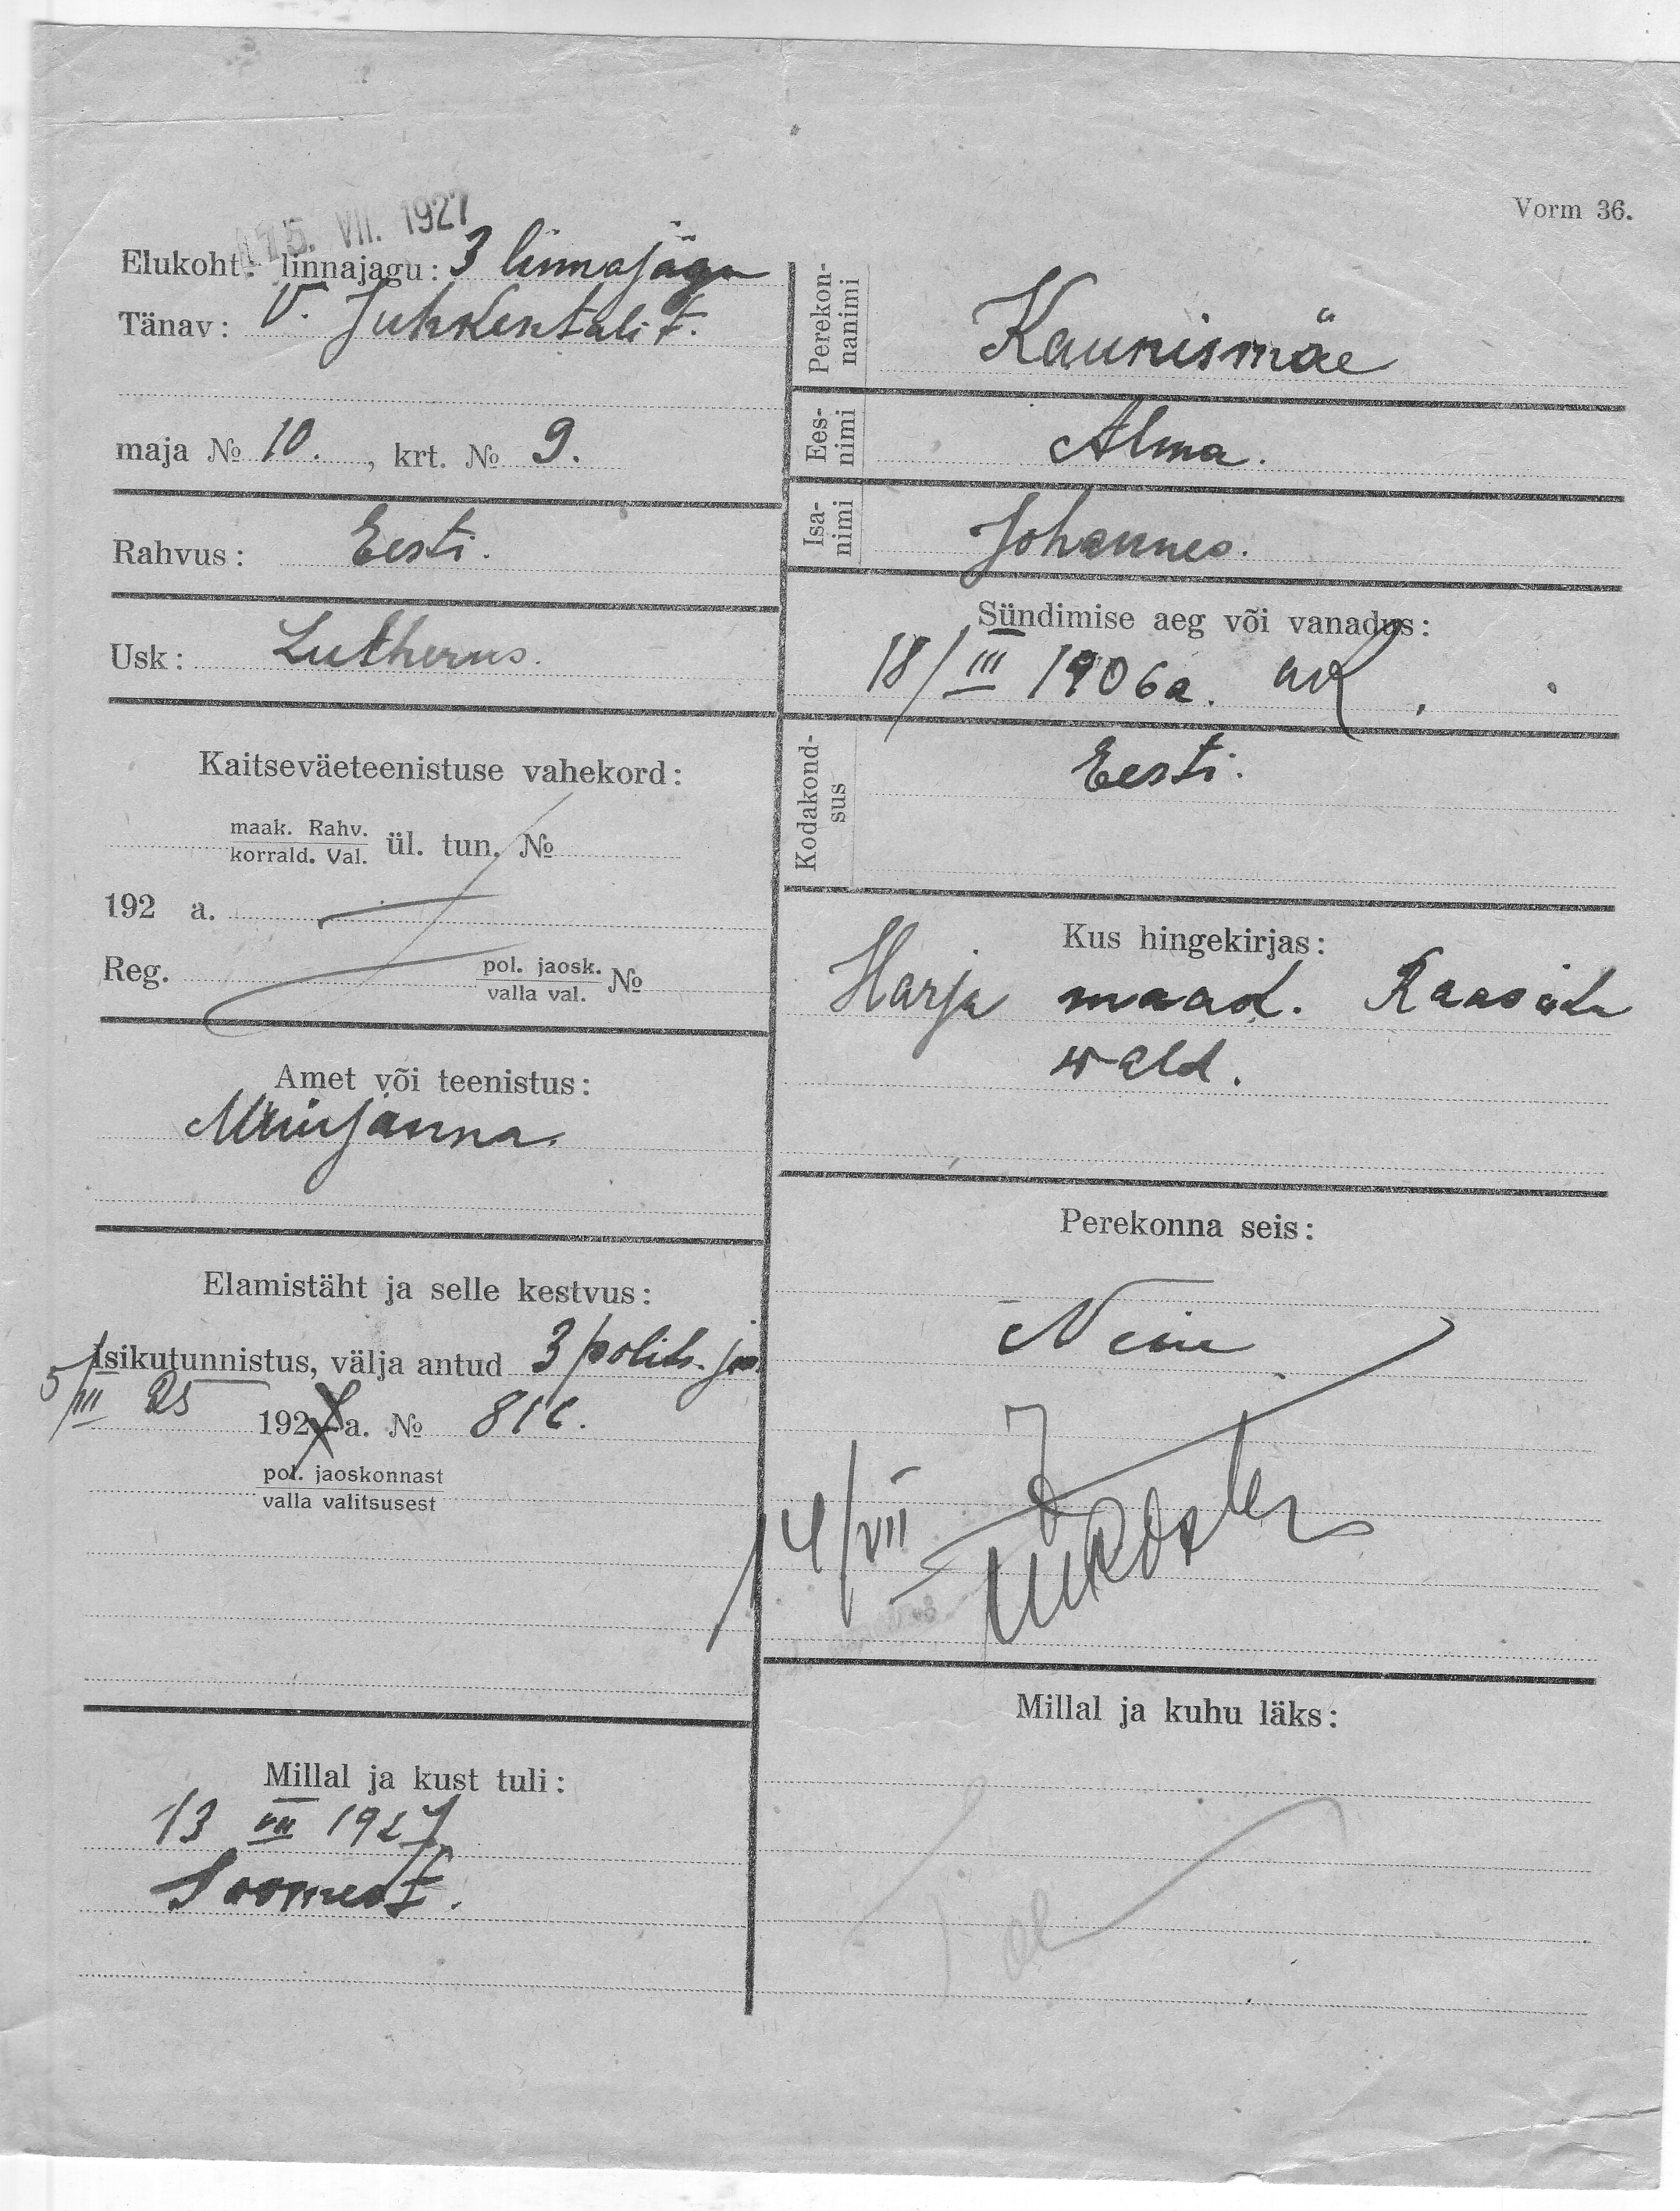 Vorm 36.
15. VII. 1927
Elukoht: linnajagu: 3 linnajagu
Tänav: V. Juhkentali t.
maja № 10. , krt. № 9.
Rahvus: Eesti.
Usk: Lutherus.
Kaitseväeteenistuse vahekord:
maak. Rahv.
korrald. Val. ül. tun. №
192 a.
Reg. pol. jaosk.
valla val. №
Amet või teenistus:
Elamistäht ja selle kestvus:
Isikutunnistus, välja antud 3 polits. jas.
5/III 25 192 a. №
pol. jaoskonnast
valla valitsusest
Millal ja kust tuli:
13 VII 1927
Soomest.
Perekon-
nanimi Kaunismäe
Ees-
nimi Alma.
Isa-
nimi Johannes.
Sündimise aeg või vanadus:
18/III 1906 a.
Kodakond-
sus Eesti.
Kus hingekirjas:
Harju maad. Raasiku
wald.
Perekonna seis:
Neiu
14/VII
Millal ja kuhu läks: